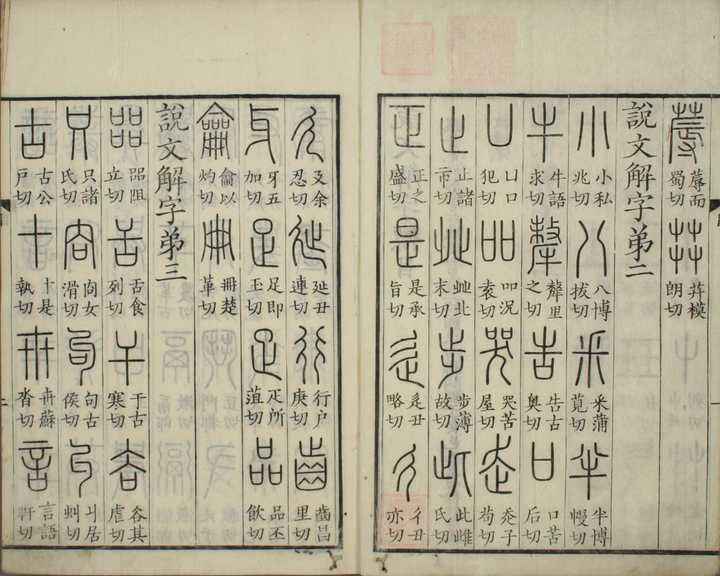 蓐 蓐而蜀切 茻 茻模朗切
說文解字弟二
小 小私兆切 八 八博拔切 釆 釆蒲莧切 半 半博幔切
牛 牛語求切 犛 犛里之切 告 告古奧切 口 口苦后切
凵 凵口犯切 吅 吅況袁切 哭 哭苦屋切 走 走子苟切
止 止諸市切 癶 癶北末切 步 步薄故切 此 此雌氏切
正 正之盛切 是 是承旨切 辵 辵丑略切 彳 彳丑亦切
廴 廴余忍切 㢟 㢟丑連切 行 行戶庚切 齒 齒昌里切
牙 牙五加切 足 足即玉切 疋 疋所菹切 品 品丕飲切
龠 龠以灼切 冊 冊楚革切
說文解字弟三
㗊 㗊阻立切 舌 舌食列切 干 干古寒切 𧮫 𧮫其虐切
只 只諸氏切 㕯 㕯女滑切 句 句古侯切 丩 丩居虯切
古 古公戶切 十 十是執切 卅 卅蘇沓切 言 言語軒切